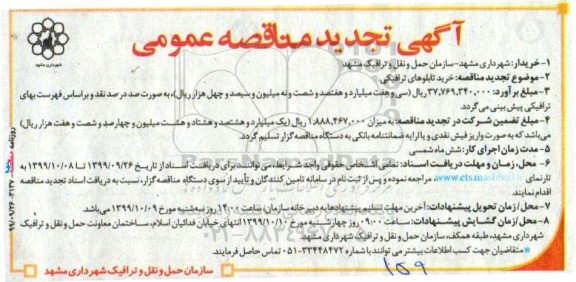 آگهی تجدید مناقصه عمومی
شهرداری مشهد
۱- خریدار: شهرداری مشهد-سازمان حمل و نقل و ترافیک مشهد
۲-موضوع تجدید مناقصه: خرید تابلوهای ترافیکی
۳- مبلغ برآورد: ۳۷,۷۶۹,۳۴۰,۰۰۰ ریال (سی و هفت میلیارد و هفتصد و شصت و نه میلیون و سیصد و چهل هزار ریال)، به صورت صد در صد نقد و براساس فهرست بهای
ترافیکی پیش بینی می گردد.
۴- مبلغ تضمین شرکت در تجدید مناقصه: به میزان ۱,۸۸۸,۴۶۷,۰۰۰ ریال (یک میلیارد و هشتصد و هشتاد و هشت میلیون و چهارصد و شصت و هفت هزار ریال)
می باشد که به صورت واریز فیش نقدی و یا ارایه ضمانتنامه بانکی به دستگاه مناقصه گزار تسلیم گردد.
۵- مدت زمان اجرای کار: شش ماه شمسی
۶- محل/زمان و مهلت دریافت اسناد: تمامی اشخاص حقوقی واجد شرایط، می توانند برای دریافت اسناد از تاریخ ۱۳۹۹/۰۹/۲۶ تا ۱۳۹۹/۱۰/۰۸ به
تارنمای www.ets.mashhad.ir مراجعه نموده و پس از ثبت نام در سامانه تامین کنندگان و تأیید از سوی دستگاه مناقصه گزار، نسبت به دریافت اسناد تجدید مناقصه
اقدام نمایند.
۷- محل/زمان تحویل پیشنهادات: آخرین مهلت تسلیم پیشنهادها به دبیرخانه سازمان، ساعت ۱۴:۰۰ روز سه شنبه مورخ ۱۳۹۹/۱۰/۰۹ می باشد.
۸- محل/زمان گشایش پیشنهادات: ساعت ۰۹:۰۰ روز چهارشنبه مورخ ۱۳۹۹/۱۰/۱۰ انتهای خیابان فدائیان اسلام، ساختمان معاونت حمل و نقل و ترافیک
شهرداری مشهد، طبقه همکف، سازمان حمل و نقل و ترافیک شهرداری مشهد
متقاضیان جهت کسب اطلاعات بیشتر می توانند با شماره ۳۳۴۴۸۴۷۲-۰۵۱ تماس حاصل فرمایند.
سازمان حمل و نقل و ترافیک شهرداری مشهد
۱۵۹